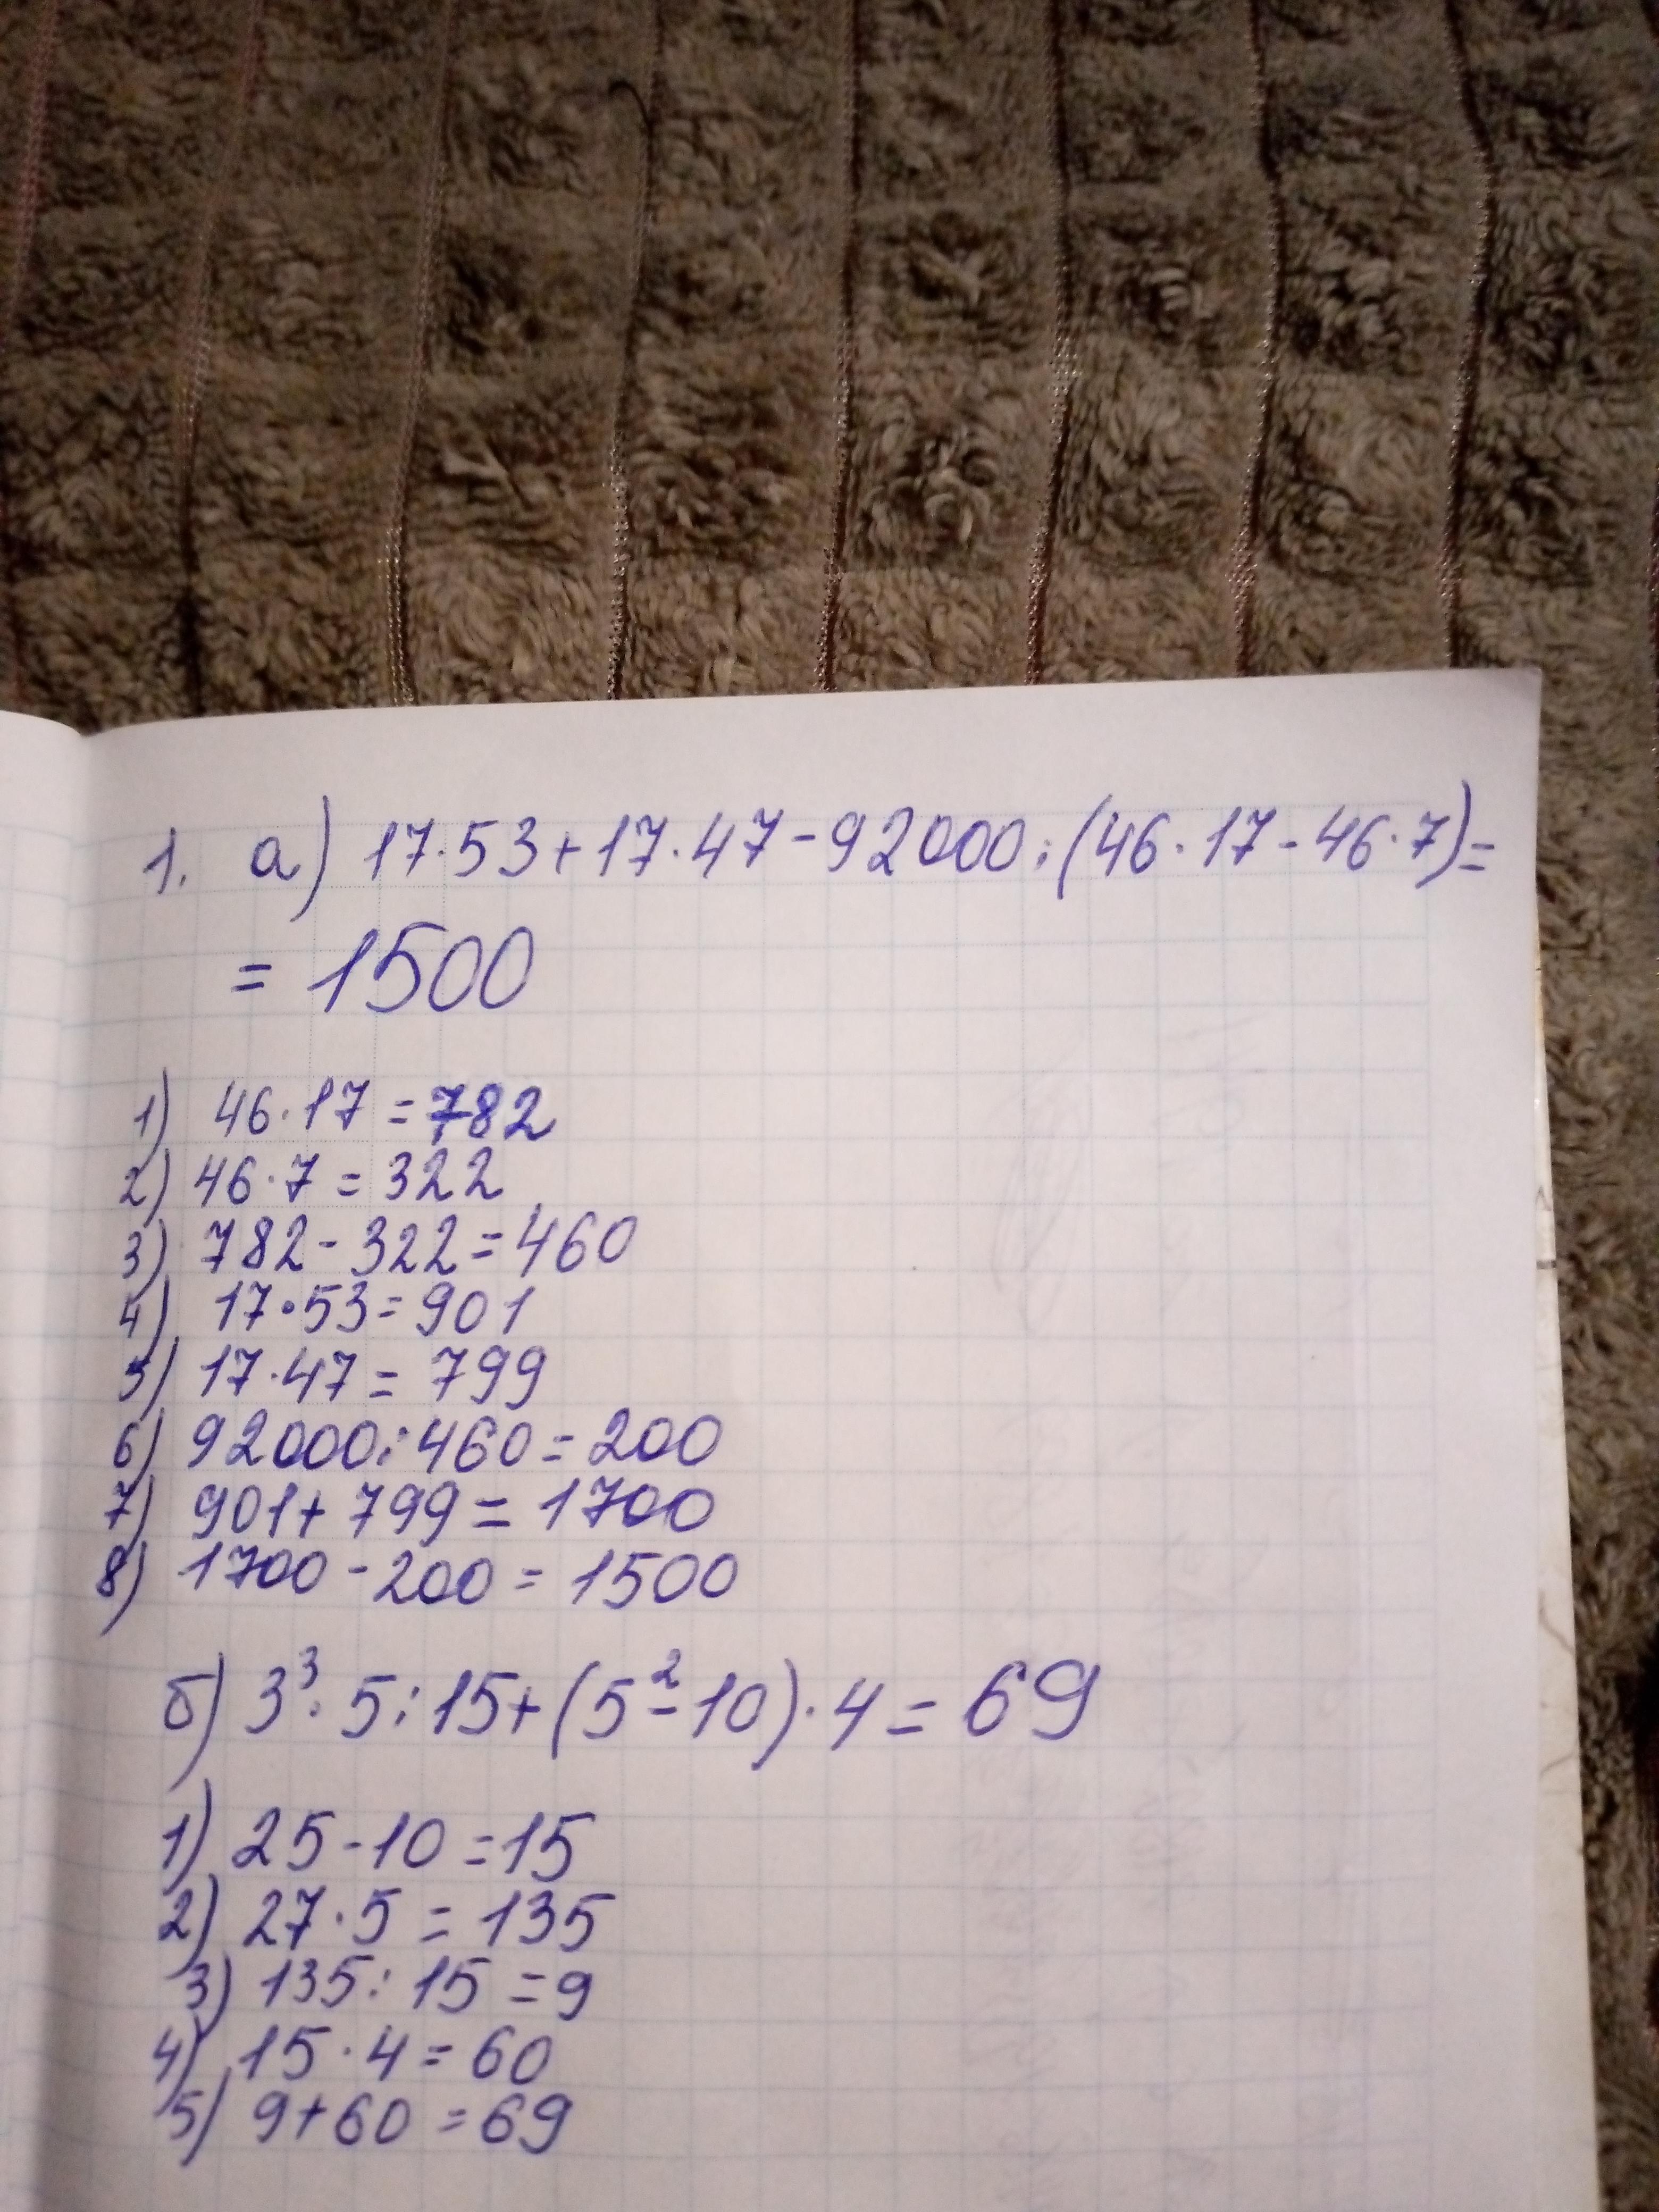 1. а) 17·53+17·47-92000:(46·17-46·7)=
= 1500
1) 46·17=782
2) 46·7=322
3) 782-322=460
4) 17·53=901
5) 17·47=799
6) 92000:460=200
7) 901+799=1700
8) 1700-200=1500
б) 3³·5:15+(5²-10)·4=69
1) 25-10=15
2) 27·5=135
3) 135:15=9
4) 15·4=60
5) 9+60=69